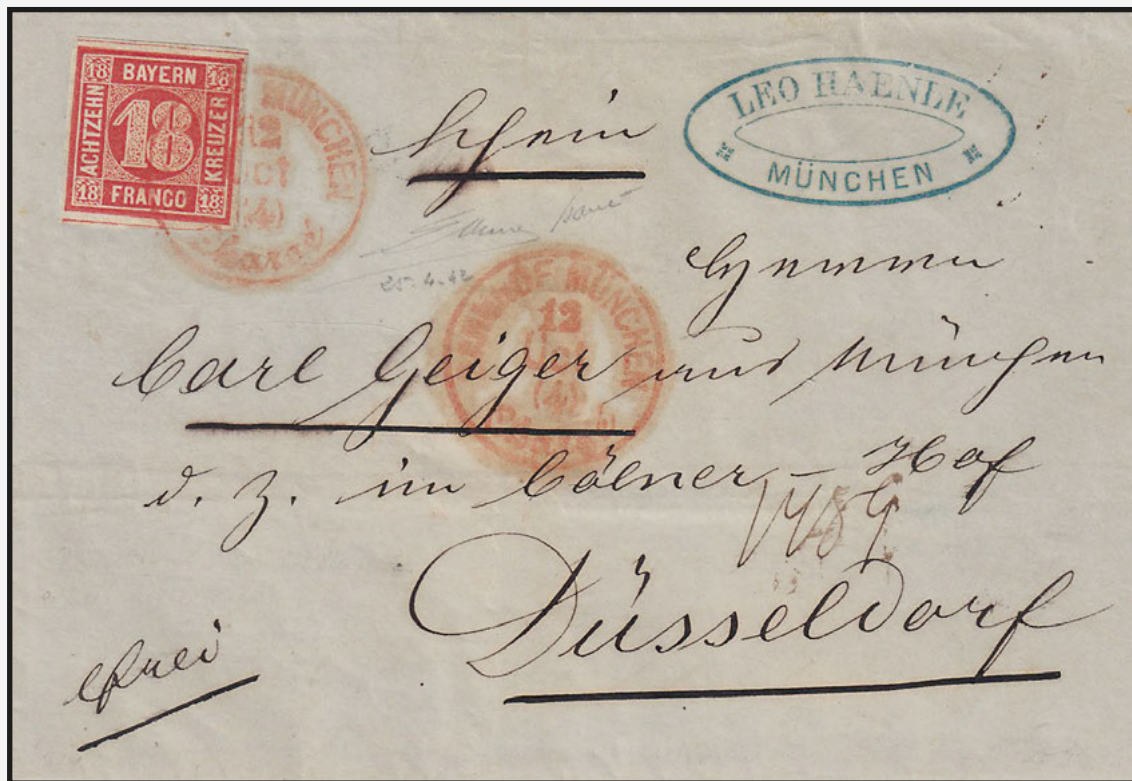 18 BAYERN 18
ACHTZEHN 18 KREUZER
18 FRANCO 18
MÜNCHEN
12
OCT
(4)
Schein
LEO HAENLE
MÜNCHEN
25.4.42
Herrn
MÜNCHEN
12
OCT
(4)
Carl Geiger aus München
d. z. im Cölner-Hof
Düsseldorf
frei